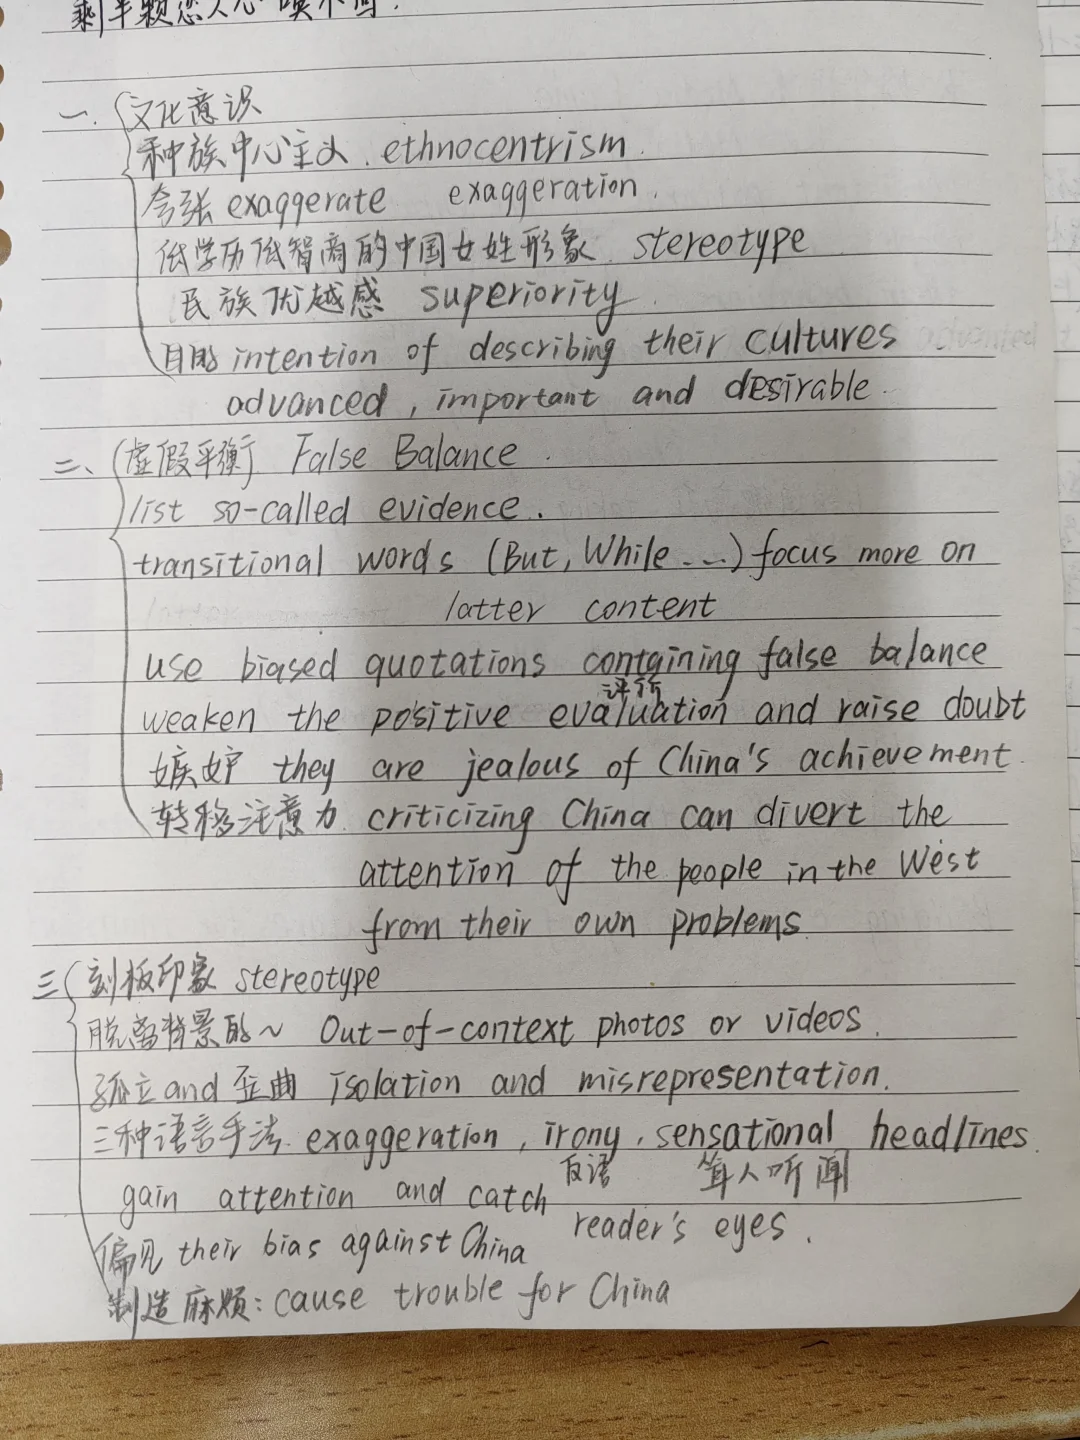 剩半颗恋人心唤不回.
一. 文化意识
种族中心主义. ethnocentrism.
夸张 exaggerate exaggeration.
低学历低智商的中国女姓形象. stereotype
民族优越感 superiority.
目的 intention of describing their cultures
advanced, important and desirable.
二、虚假平衡 False Balance.
list so-called evidence.
transitional words (But, While ...) focus more on
latter content
use biased quotations containing false balance
评价
weaken the positive evaluation and raise doubt
嫉妒 they are jealous of China's achievement.
转移注意力. criticizing China can divert the
attention of the people in the West
from their own problems.
三 刻板印象 stereotype
脱离背景的~ Out-of-context photos or videos.
孤立and歪曲 isolation and misrepresentation.
三种语言手法. exaggeration, irony, sensational headlines.
反语 耸人听闻
gain attention and catch reader's eyes.
偏见 their bias against China
制造麻烦: cause trouble for China